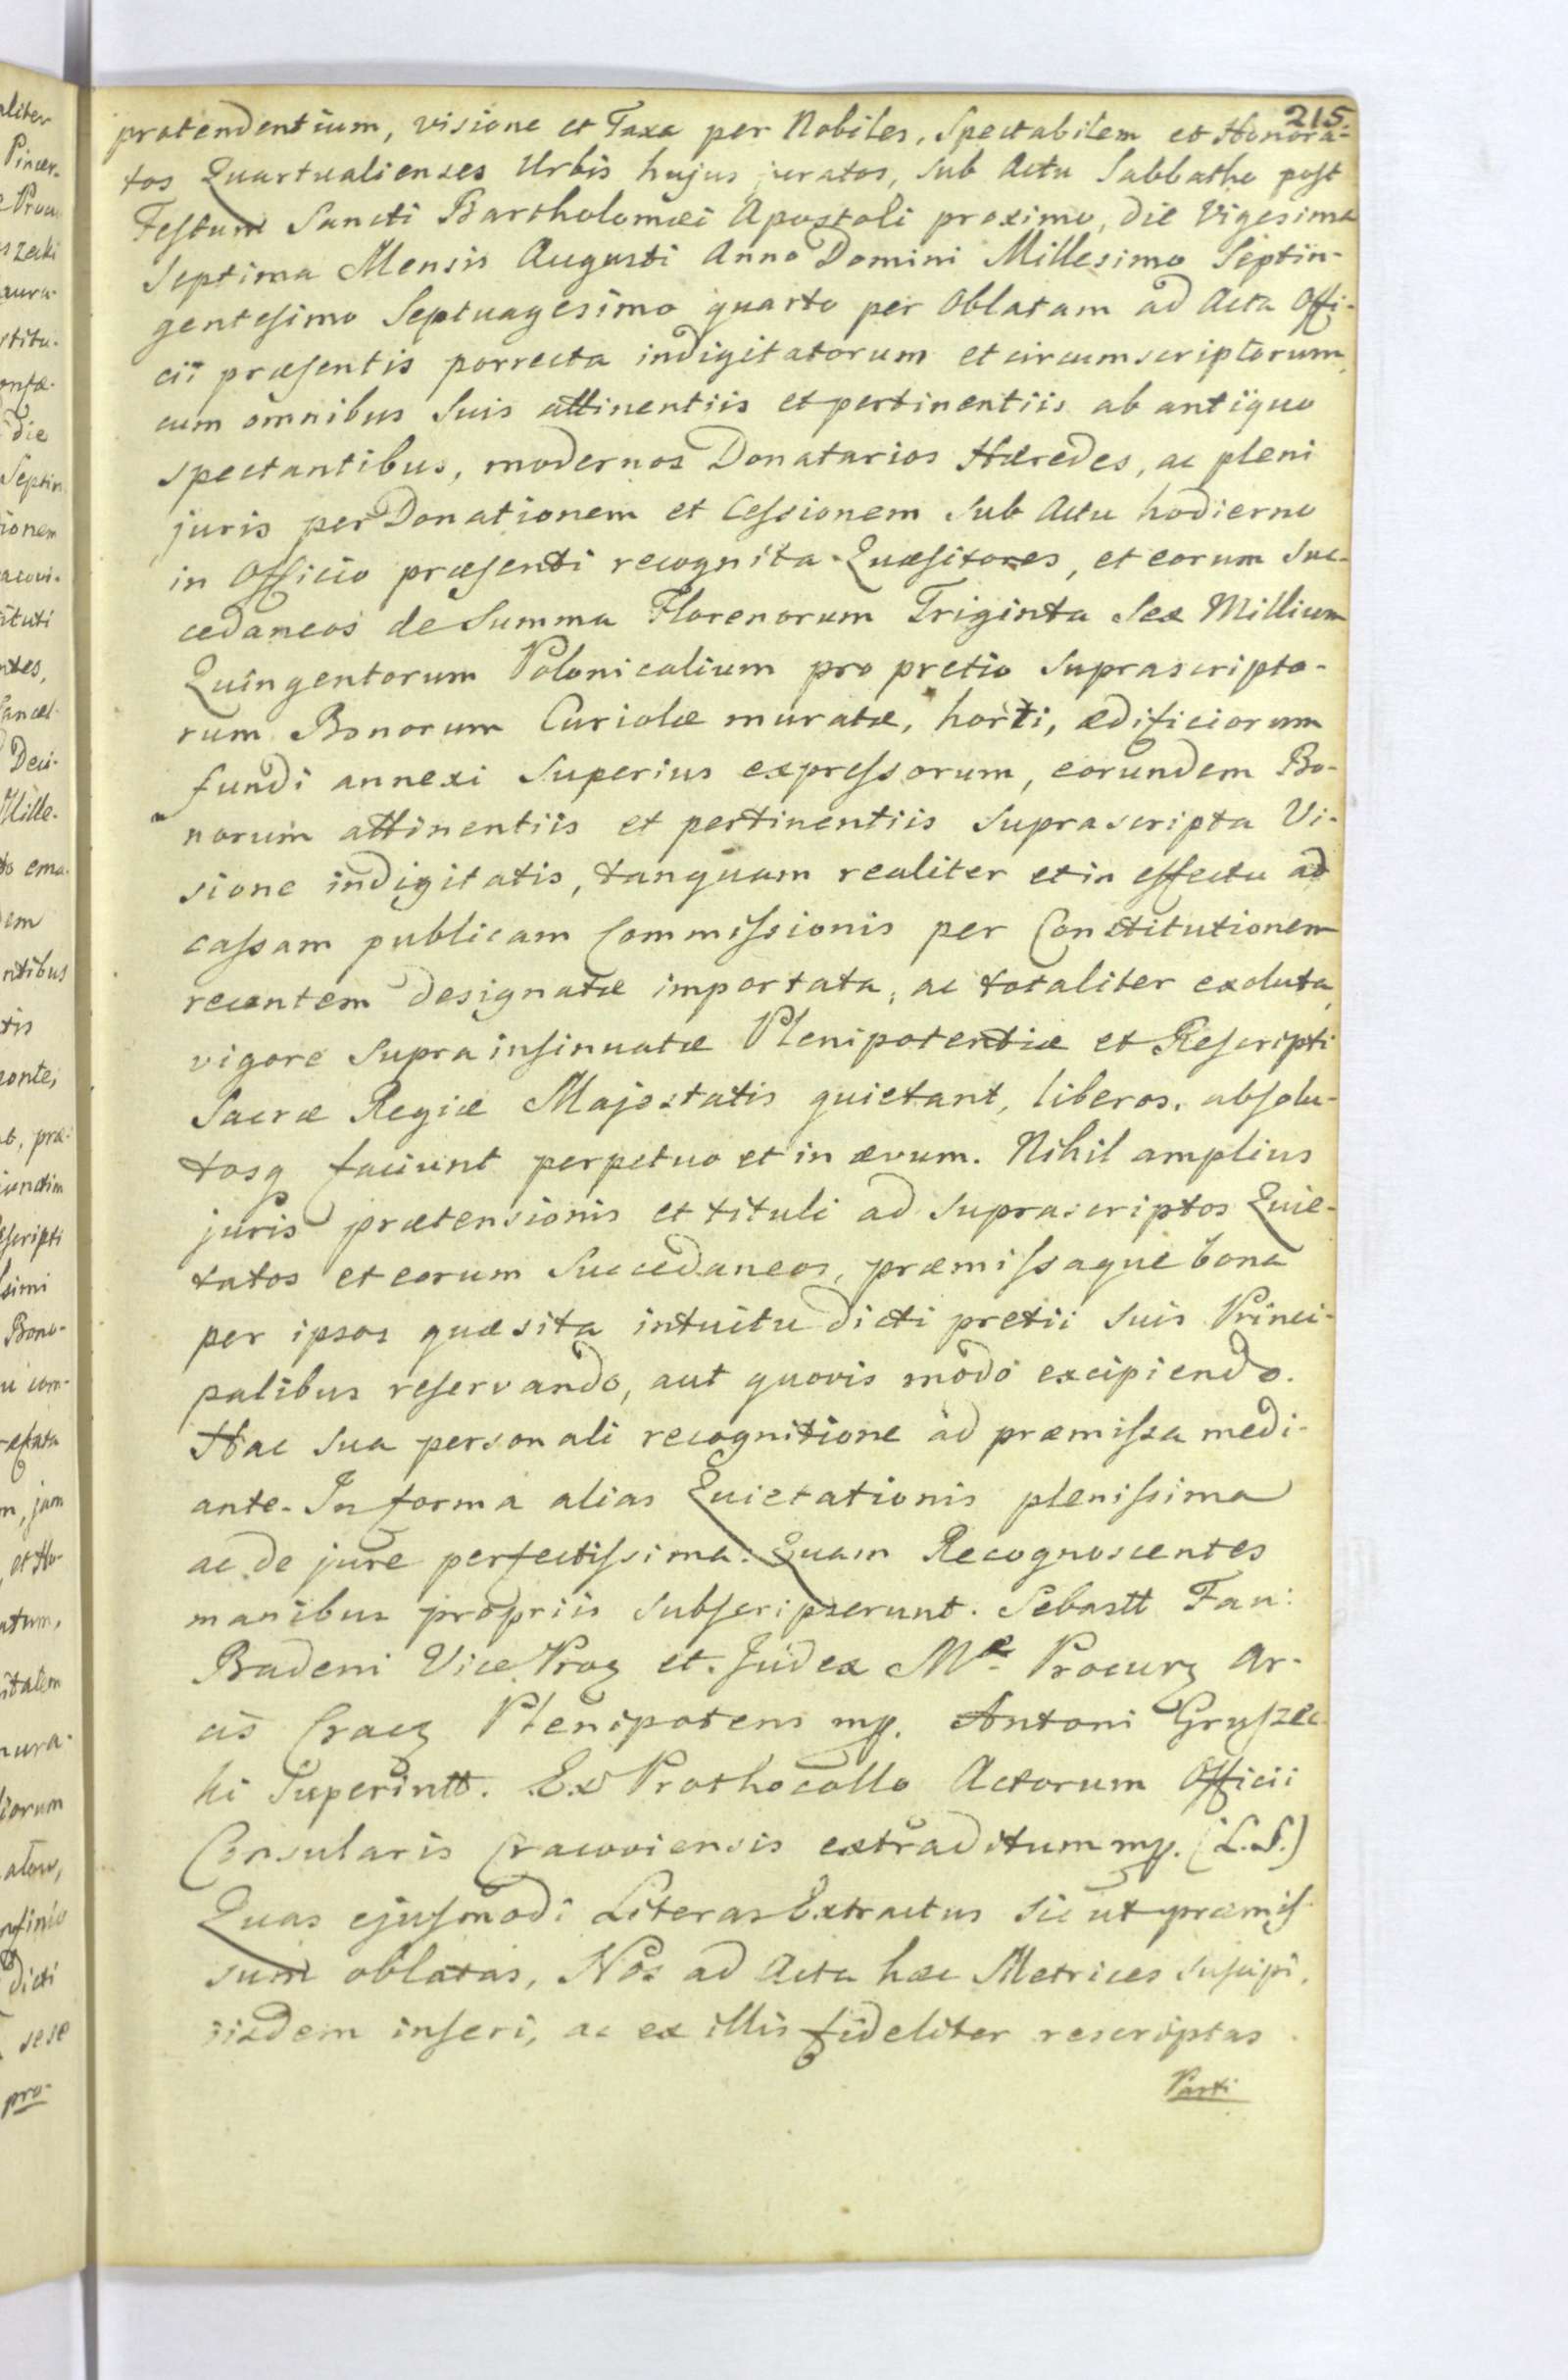 215
prætendentium, visione et Taxa per Nobiles, Spectabilem et Honora-
tos Quartualienses Urbis hujus juratos, sub Actu Sabbatho post
Festum Sancti Bartholomæi Apostoli proximo, die Vigesima
Septima Mensis Augusti Anno Domini Millesimo Septin-
gentesimo Septuagesimo quarto per Oblatam ad Acta Offi-
cii præsentis porrecta indigitatorum et circumscriptorum,
cum omnibus suis attinentiis et pertinentiis ab antiquo
spectantibus, modernos Donatarios Hæredes, ac pleni
juris per Donationem et Cessionem sub Actu hodierno
in Officio præsenti recognita Quæsitores, et eorum suc-
cedaneos de Summa Florenorum Triginta Sex Millium
Quingentorum Polonicalium pro pretio suprascripto-
rum Bonorum Curiolæ muratæ, horti, ædificiorum
fundi annexi superius expressorum, eorundem Bo-
norum attinentiis et pertinentiis suprascripta Vi-
sione indigitatis, tanquam realiter et in effectu ad
cassam publicam Commissionis per Constitutionem
recentem designatæ importata, ac totaliter exoluta,
vigore supra insinuatæ Plenipotentiæ et Rescripti
Sacræ Regiæ Majestatis quietant, liberos, absolu-
tosq faciunt perpetuo et in ævum. Nihil amplius
juris prætensionis et tituli ad suprascriptos Quie-
tatos et eorum Succedaneos, præmissaque bona
per ipsos quæsita intuitu dicti pretii suis Princi-
palibus reservando, aut quovis modo excipiendo.
Hac sua personali recognitione ad præmissa medi-
ante. In forma alias Quietationis plenissima
ac de jure perfectissima. Quam Recognoscentes
manibus propriis subscripserunt. Sebastt Fan:
Badeni Vice Proz et Judex M. Procurz Ar-
cis Cracz Plenipotens mp. Antoni Gruszec-
ki Superintt. Ex Prothocollo Actorum Officii
Consularis Cracoviensis extraditum mp. (L.S.)
Quas ejusmodi Literas Extractus sic ut præmis-
sum oblatas, Nos ad Acta hæc Metrices suscipi,
iisdem inseri, ac ex illis fideliter rescriptas
Parti